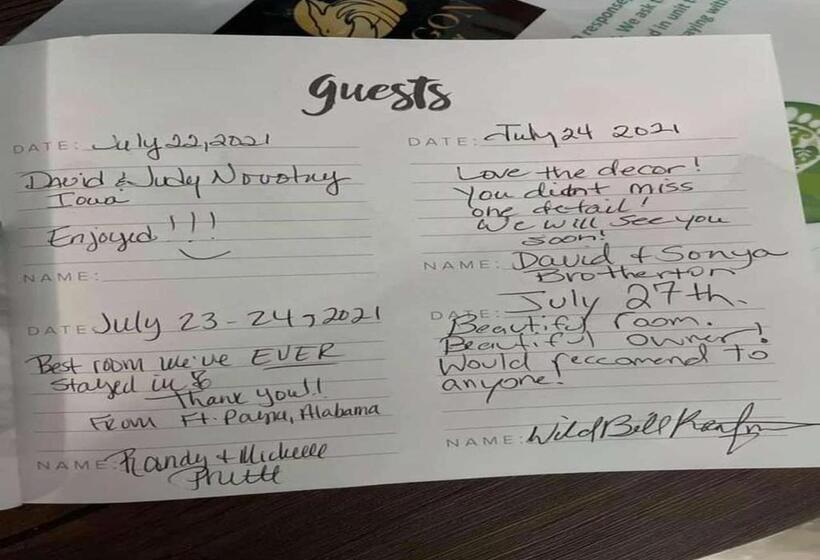 GON
response
We ask t
d in unit t
aying with
guests
DATE: July 22, 2021
David & Judy Novotny
Iowa
Enjoyed!!!
NAME:
DATE July 23-24, 2021
Best room we've EVER
stayed in &
Thank you!!
From Ft. Payne, Alabama
NAME: Randy + Michelle
Pruitt
DATE: July 24 2021
Love the decor!
You didn't miss
one detail!
We will see you
soon!
NAME: David + Sonya
Brotherton
DATE: July 27th.
Beautiful room.
Beautiful owner!
Would reccomend to
anyone!
NAME: Wild Bill